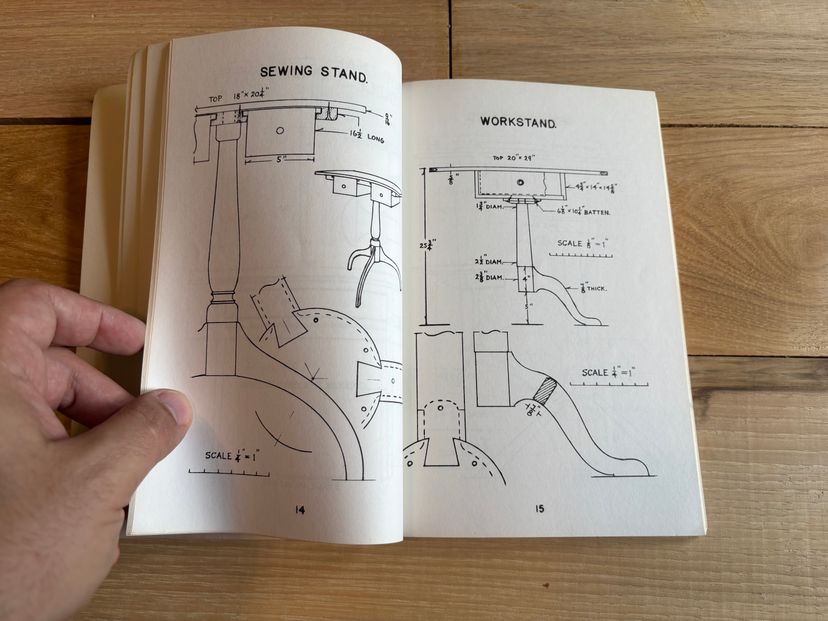 SEWING STAND.
TOP 18" × 20 1/4"
9/16"
16 1/2 LONG
5"
SCALE 1/4" = 1"
14
WORKSTAND.
TOP 20" × 29"
4 3/4" × 14" × 14 5/8"
1 3/4" DIAM.
6 1/2" × 10 1/4" BATTEN.
25 3/4"
SCALE 1/8" = 1"
2 1/2" DIAM.
2 3/8" DIAM.
4"
7/8" THICK.
5"
SCALE 1/4" = 1"
15